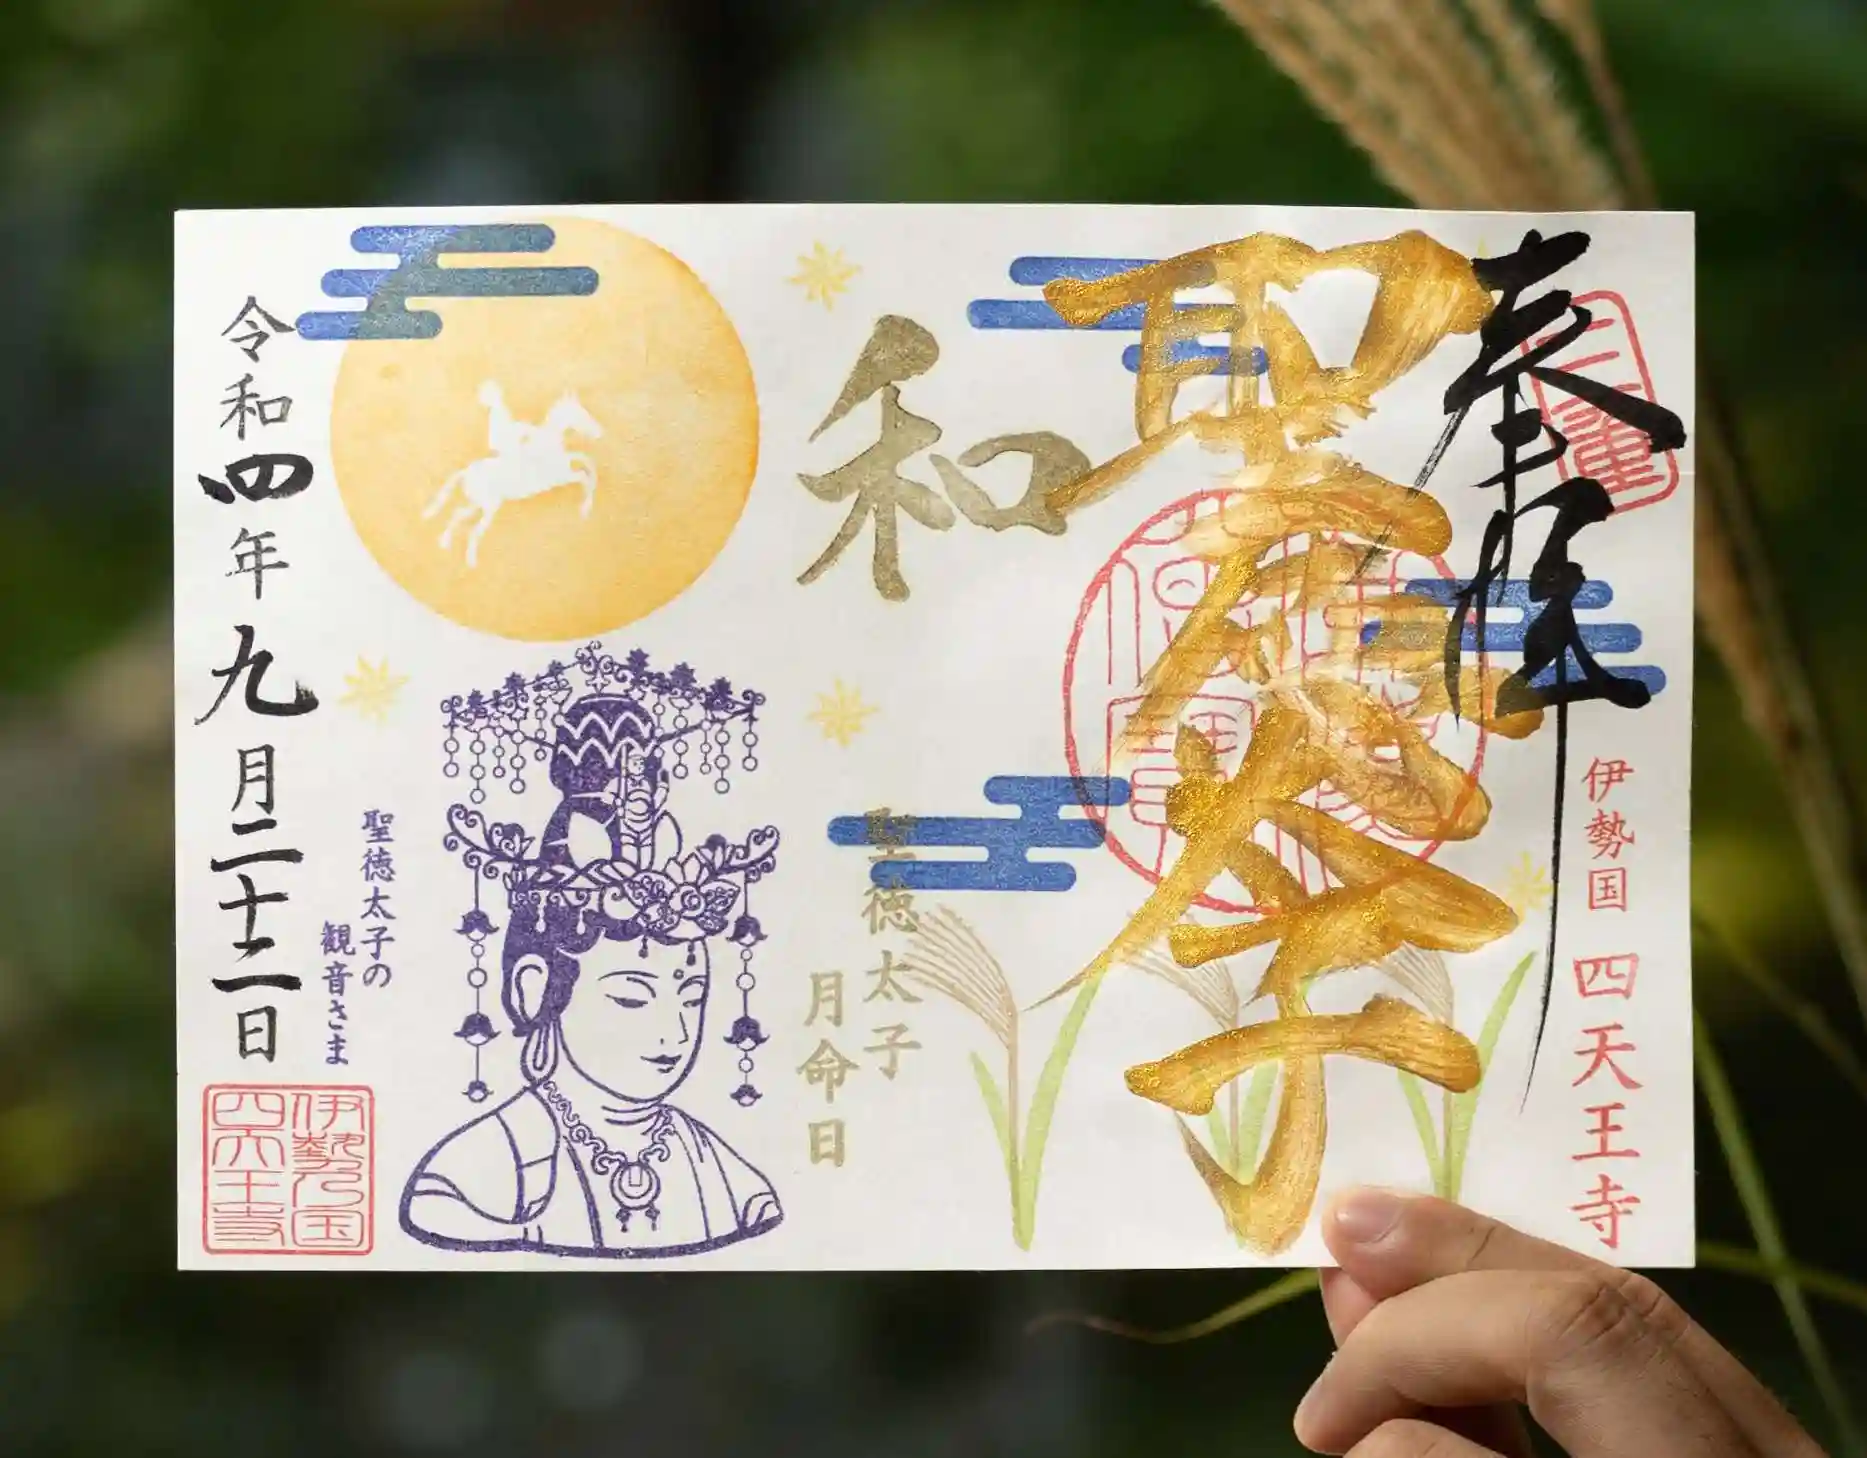 奉拝
三重
伊勢国 四天王寺
聖徳太子
和
聖徳太子
月命日
聖徳太子の
観音さま
令和四年九月二十二日
伊勢乃国
四天王寺